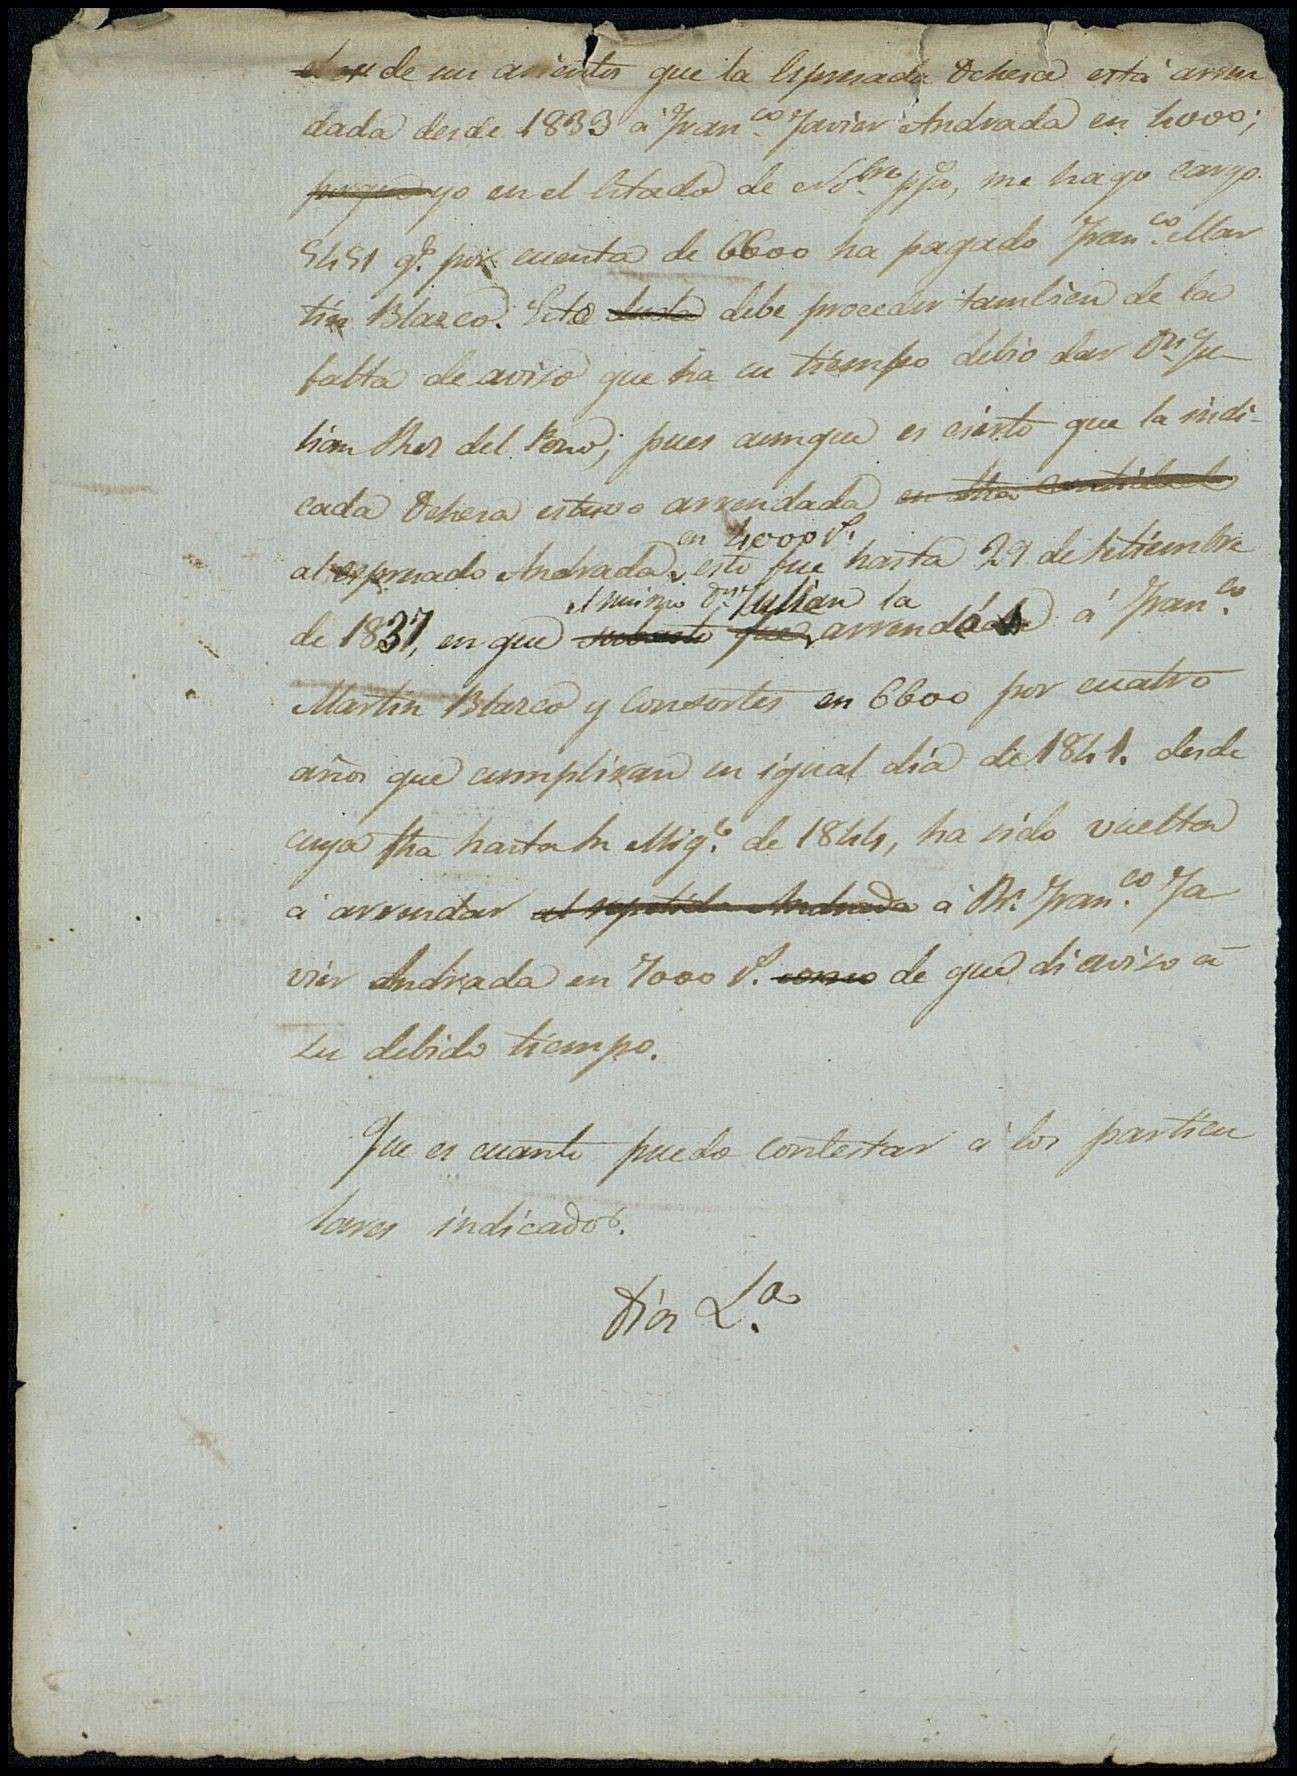 de sus asientos que la Espresada Dehesa está arren
dada desde 1833 á Fran.co Javier Andrada en 4000;
porque yo en el Estado de Nobre ppdo, me hago cargo
5451 q.e por cuenta de 6600 ha pagado Fran.co Mar
tin Blazco. Esto debe proceder tambien de la
falta de aviso que ha su tiempo debio dar Dn. Ju-
lian Pher del Pozo; pues aunque es cierto que la indi-
cada Dehesa estuvo arrendada en dha cantidad
en 4000 r.s
al espresado Andrada, esto fue hasta 29 de Setiembre
el mismo Dn. Julian la
de 1837, en que arrendó á Fran.co
Martin Blazco y Consortes en 6600 por cuatro
años que cumpliran en igual dia de 1841. desde
cuya fha hasta Sn Mig.l de 1844, ha sido vuelta
á arrendar al repetido Andrada á Dn. Fran.co Ja
vier Andrada en 7000 r.s como de que di aviso á
su debido tiempo.
Que es cuanto puedo contestar á los particu
lares indicados.
Dios L.a